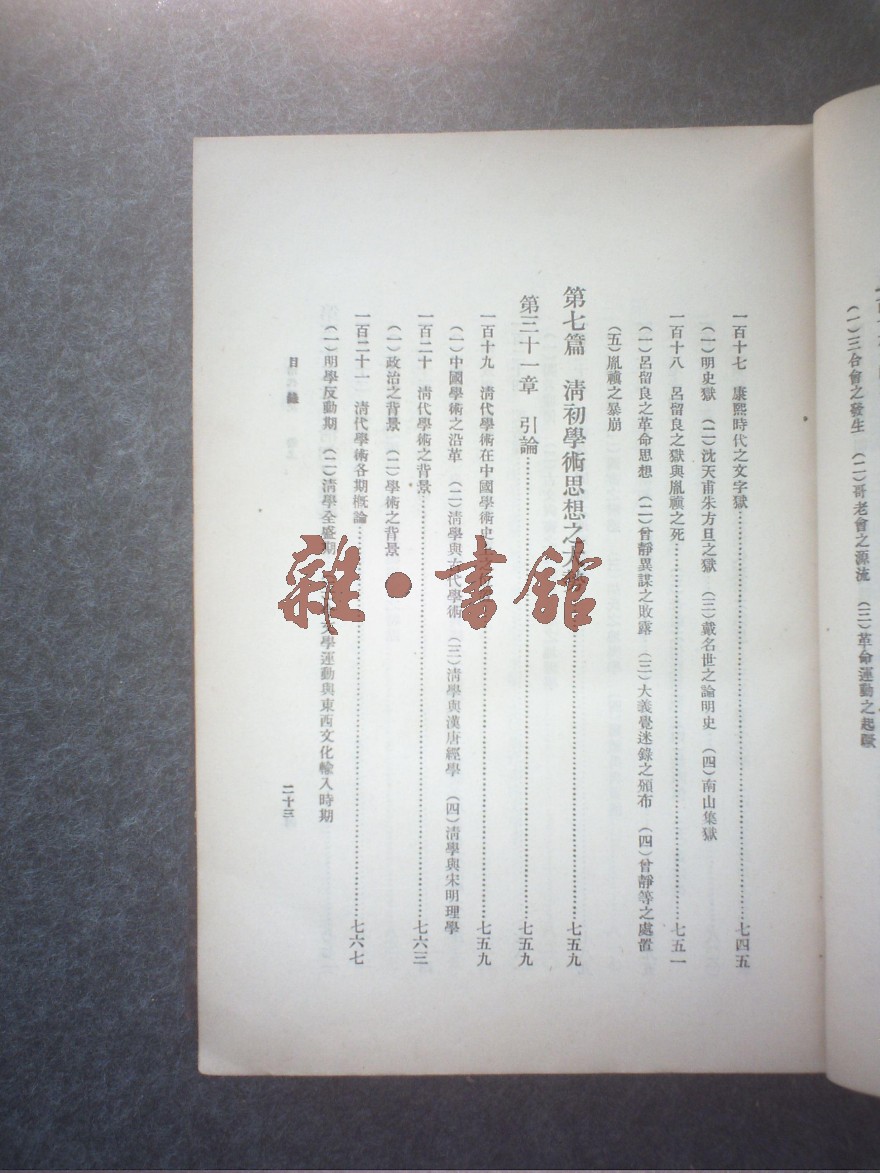 (一)三合會之發生 (二)哥老會之源流 (三)革命運動之起
一百十七 康熙時代之文字獄……七四五
(一)明史獄 (二)沈天甫朱方旦之獄 (三)戴名世之論明史 (四)南山集獄
一百十八 呂留良之獄與胤禛之死……七五一
(一)呂留良之革命思想 (二)曾靜異謀之敗露 (三)大義覺迷錄之頒布 (四)曾靜等之處置
(五)胤禛之暴崩
第七篇 清初學術思想之大……七五九
第三十一章 引論……七五九
一百十九 清代學術在中國學術史……七五九
(一)中國學術之沿革 (二)清學與古代學術 (三)清學與漢唐經學 (四)清學與宋明理學
一百二十 清代學術之背景……七六三
(一)政治之背景 (二)學術之背景
一百二十一 清代學術各期概論……七六七
(一)明學反動期 (二)清學全盛期 文學運動與東西文化輸入時期
目錄
二十三
雜•書館